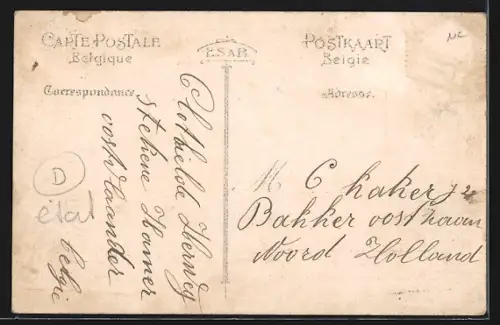 CARTE POSTALE
Belgique
E.S.A.B.
POSTKAART
België
Correspondance.
Adresse.
Clothielde Herweg
stekene Hamer
oostvlaander
belgie
D
état
M C kaker
Bakker oosthaven
Noord Holland